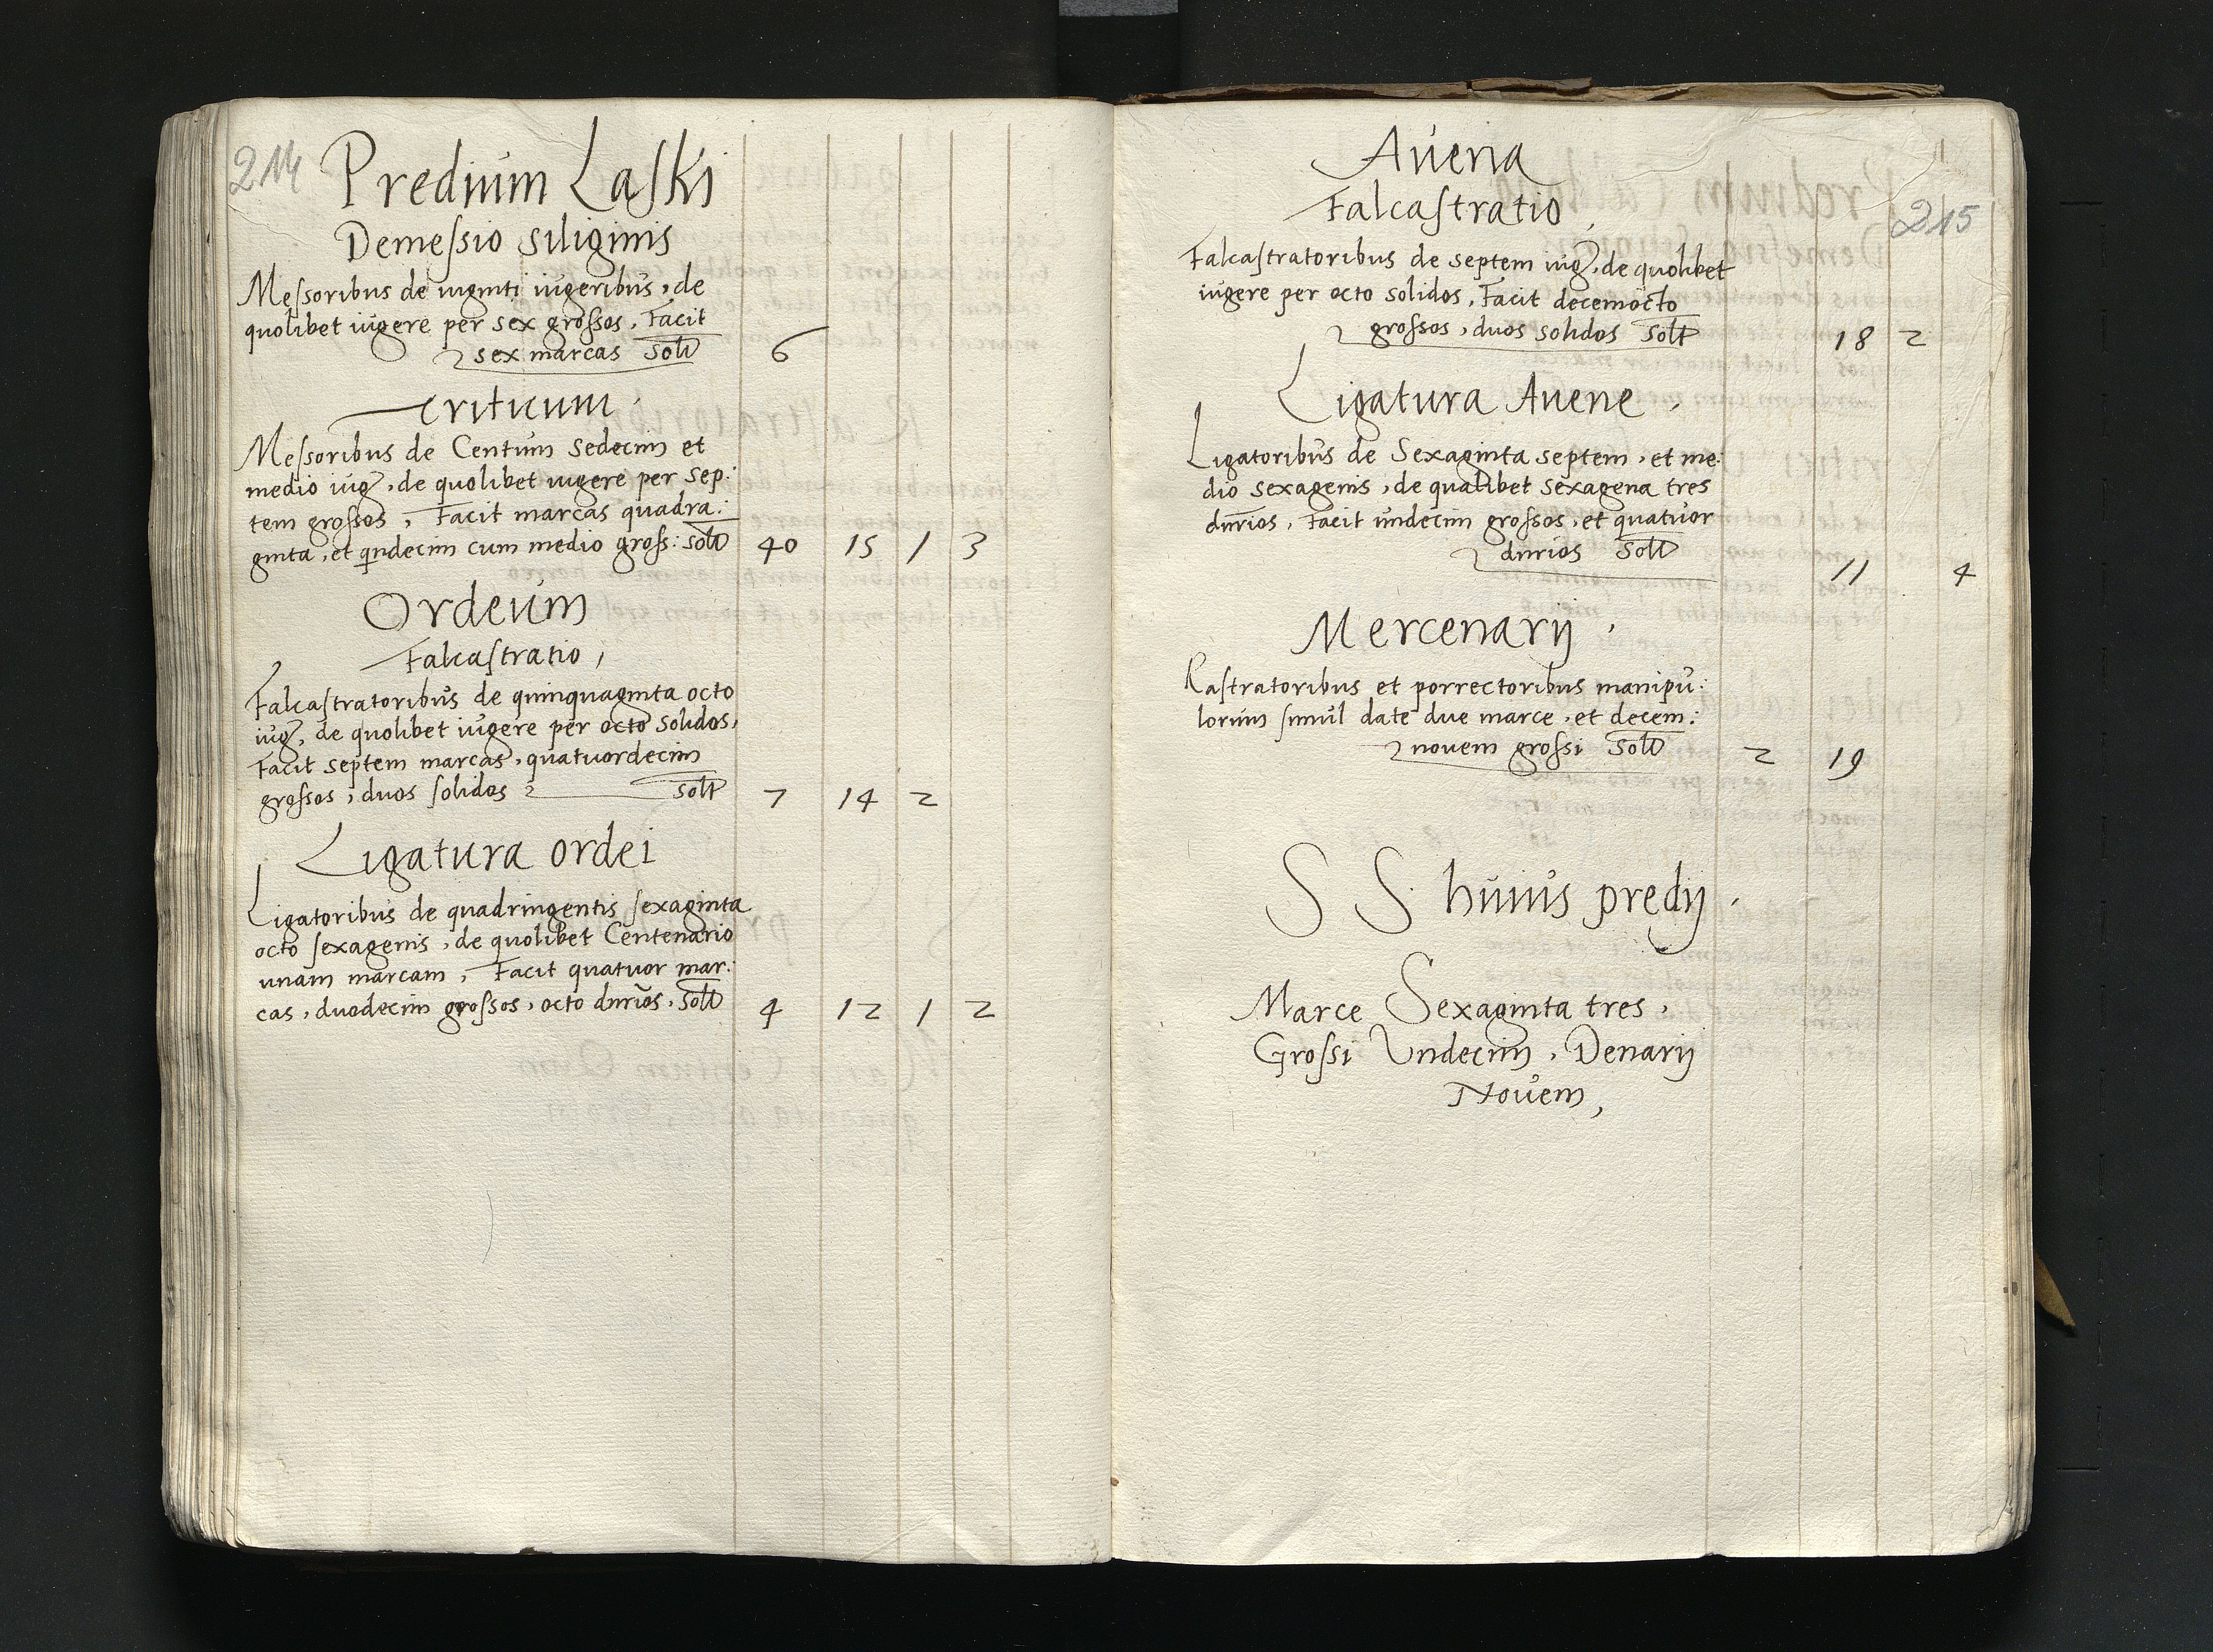 214
Predium Laski
Demeſsio siliginis
Meſsoribus de viginti iugeribus, de
quolibet iugere per sex groſsos, Facit
sex marcas Solt 6
Triticum.
Meſsoribus de Centum Sedecim et
medio iug, de quolibet iugere per Sep:
tem groſsos, Facit marcas quadra:
ginta, et qndecim cum medio groſs: Solt 40 15 1 3
Ordeum
Falcaſtratio,
Falcaſtratoribus de quinquaginta octo
iug, de quolibet iugere per octo Solidos,
Facit septem marcas, quatuordecim
groſsos, duos ſolidos Solt 7 14 2
Ligatura ordei
Ligatoribus de quadringentis ſexaginta
octo ſexagenis, de quolibet Centenario
unam marcam, Facit quatuor mar:
cas, duodecim groſsos, octo dnrios, Solt 4 12 1 2
215
Auena
Falcaſtratio
Falcaſtratoribus de septem iug, de quolibet
iugere per octo solidos, Facit decemocto
groſsos, duos solidos Solt 18 2
Ligatura Auene.
Ligatoribus de Sexaginta septem, et me:
dio sexagenis, de qualibet Sexagena tres
dnrios, Facit undecim groſsos, et quatuor
dnrios Solt 11 4
Mercenarij.
Raſtratoribus et porrectoribus manipu:
lorum ſimul date due marce, et decem:
novem groſsi Solt 2 19
S S: huius predij.
Marce Sexaginta tres,
Groſsi Vndecim, Denarij
Novem,